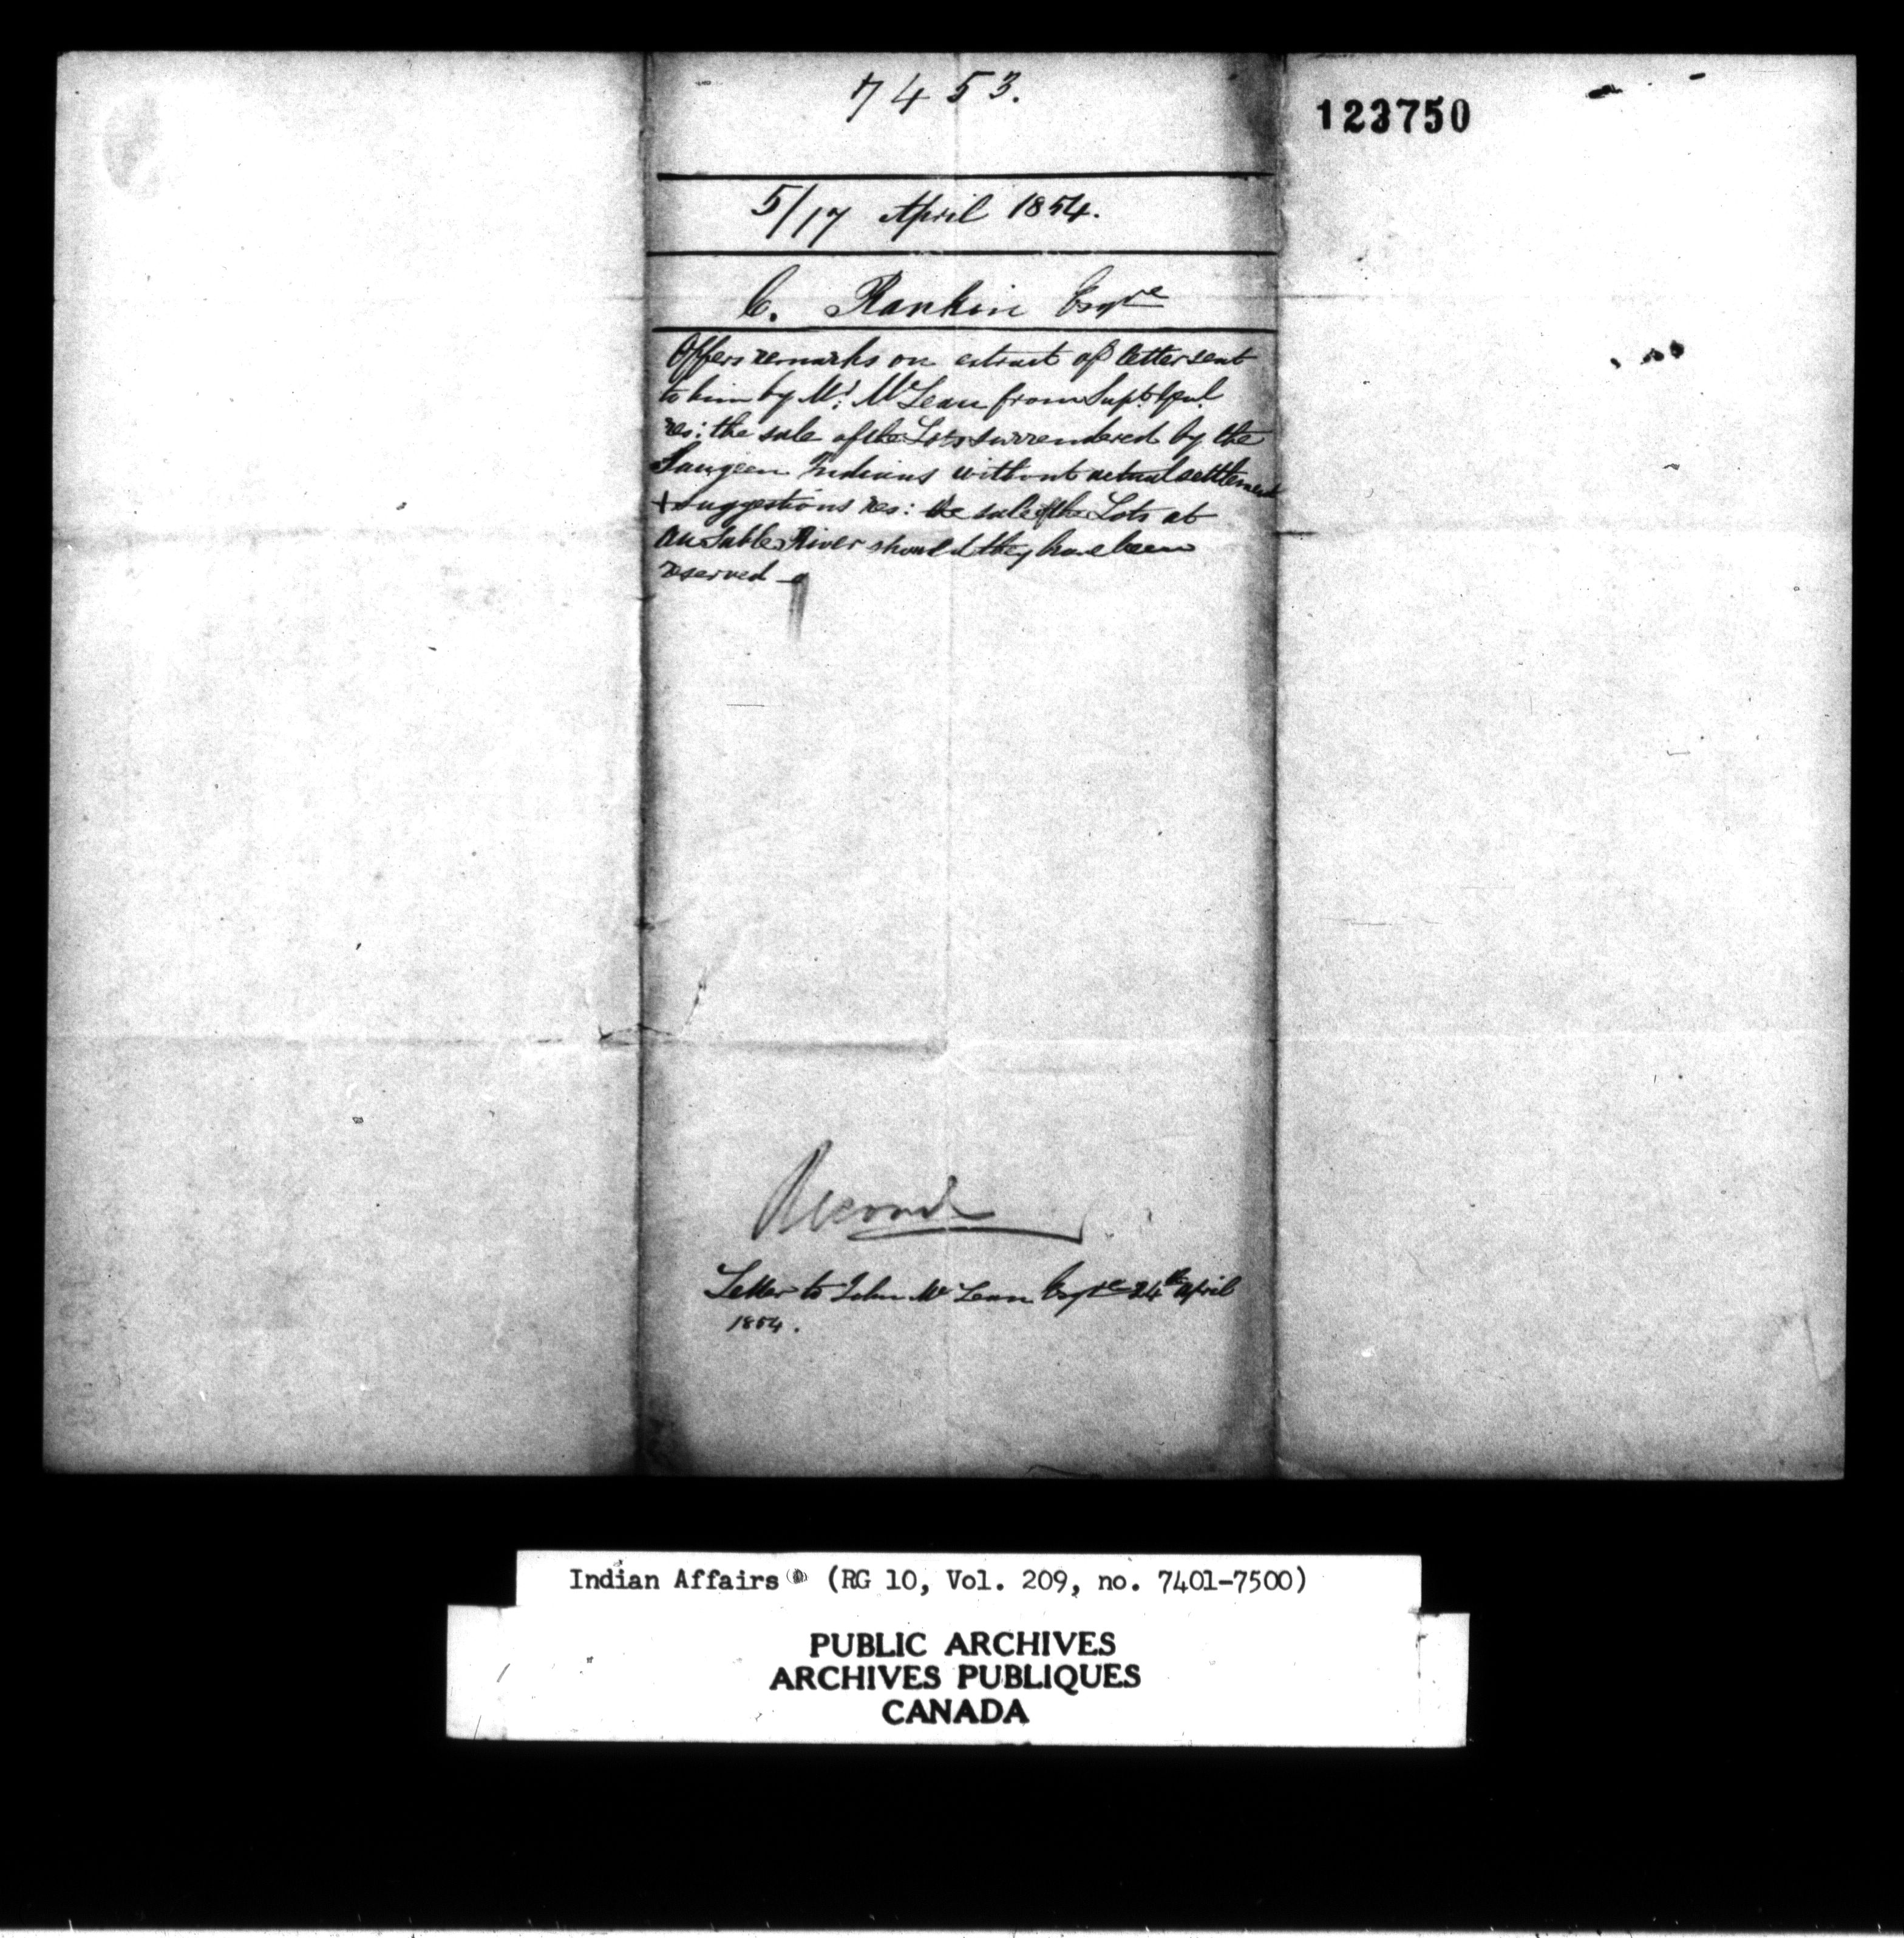 7453.
123750
5/17 April 1854.
C. Rankin Esqre
Offers remarks on extract of letter sent
to him by Mr. McLean from Supt. Genl.
res: the sale of the Lots surrendered by the
Saugeen Indians without actual settlement
& suggestions res: the sale of the Lots at
Au Sable River should they have been
reserved
Record
Letter to John McLean Esqre 24th April
1854.
Indian Affairs (RG 10, Vol. 209, no. 7401-7500)
PUBLIC ARCHIVES
ARCHIVES PUBLIQUES
CANADA